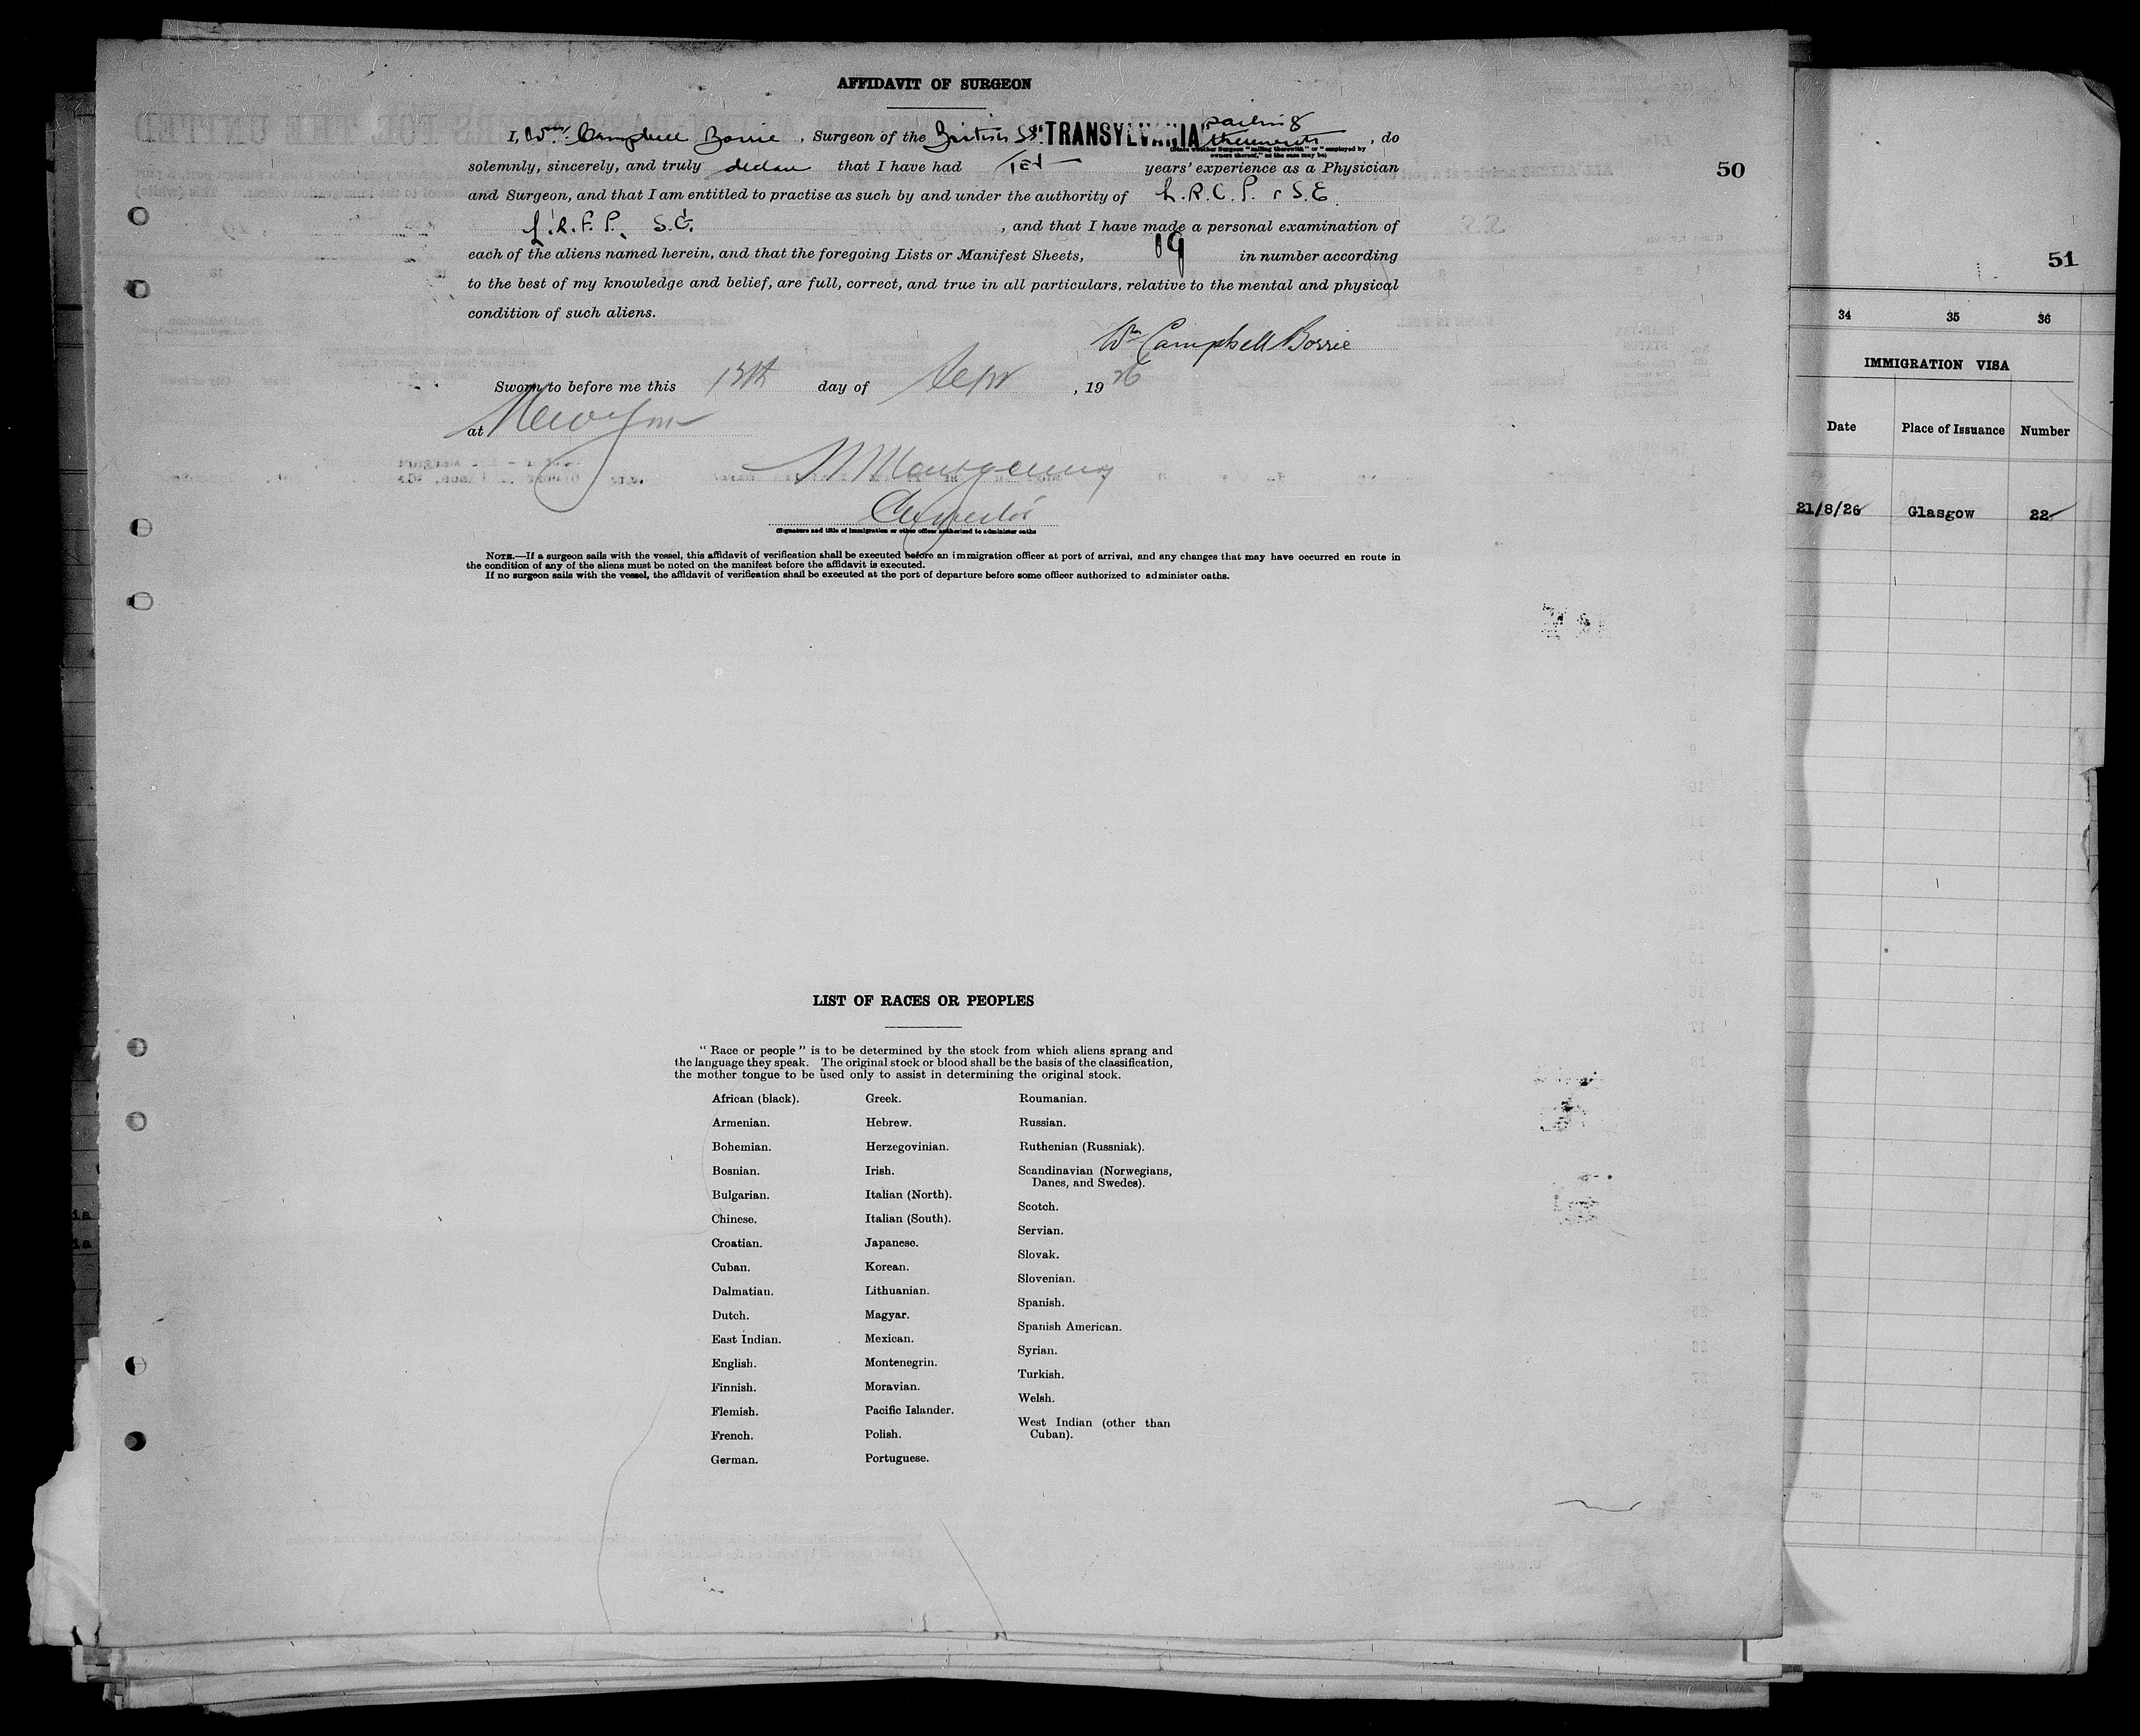 AFFIDAVIT OF SURGEON
I, Wm. Campbell Borrie, Surgeon of the British SS. "TRANSYLVANIA" sailing therewith, do
(State whether Surgeon "sailing therewith" or "employed by owners thereof," as the case may be)
solemnly, sincerely, and truly declare that I have had Ten years' experience as a Physician
and Surgeon, and that I am entitled to practise as such by and under the authority of L.R.C.P. & S.E.
L.R.F.P. S.G. , and that I have made a personal examination of
each of the aliens named herein, and that the foregoing Lists or Manifest Sheets, 19 in number according
to the best of my knowledge and belief, are full, correct, and true in all particulars, relative to the mental and physical
condition of such aliens.
Wm Campbell Borrie
Sworn to before me this 13th day of Sepr , 19 26
at New York
Montgomery
Inspector
(Signature and title of immigration or other officer authorized to administer oaths
NOTE.—If a surgeon sails with the vessel, this affidavit of verification shall be executed before an immigration officer at port of arrival, and any changes that may have occurred en route in
the condition of any of the aliens must be noted on the manifest before the affidavit is executed.
If no surgeon sails with the vessel, the affidavit of verification shall be executed at the port of departure before some officer authorized to administer oaths.
50
LIST OF RACES OR PEOPLES
"Race or people" is to be determined by the stock from which aliens sprang and
the language they speak. The original stock or blood shall be the basis of the classification,
the mother tongue to be used only to assist in determining the original stock.
African (black).
Armenian.
Bohemian.
Bosnian.
Bulgarian.
Chinese.
Croatian.
Cuban.
Dalmatian.
Dutch.
East Indian.
English.
Finnish.
Flemish.
French.
German.
Greek.
Hebrew.
Herzegovinian.
Irish.
Italian (North).
Italian (South).
Japanese.
Korean.
Lithuanian.
Magyar.
Mexican.
Montenegrin.
Moravian.
Pacific Islander.
Polish.
Portuguese.
Roumanian.
Russian.
Ruthenian (Russniak).
Scandinavian (Norwegians,
Danes, and Swedes).
Scotch.
Servian.
Slovak.
Slovenian.
Spanish.
Spanish American.
Syrian.
Turkish.
Welsh.
West Indian (other than
Cuban).
51
34 35 36
IMMIGRATION VISA
Date Place of Issuance Number
21/8/26 Glasgow 22